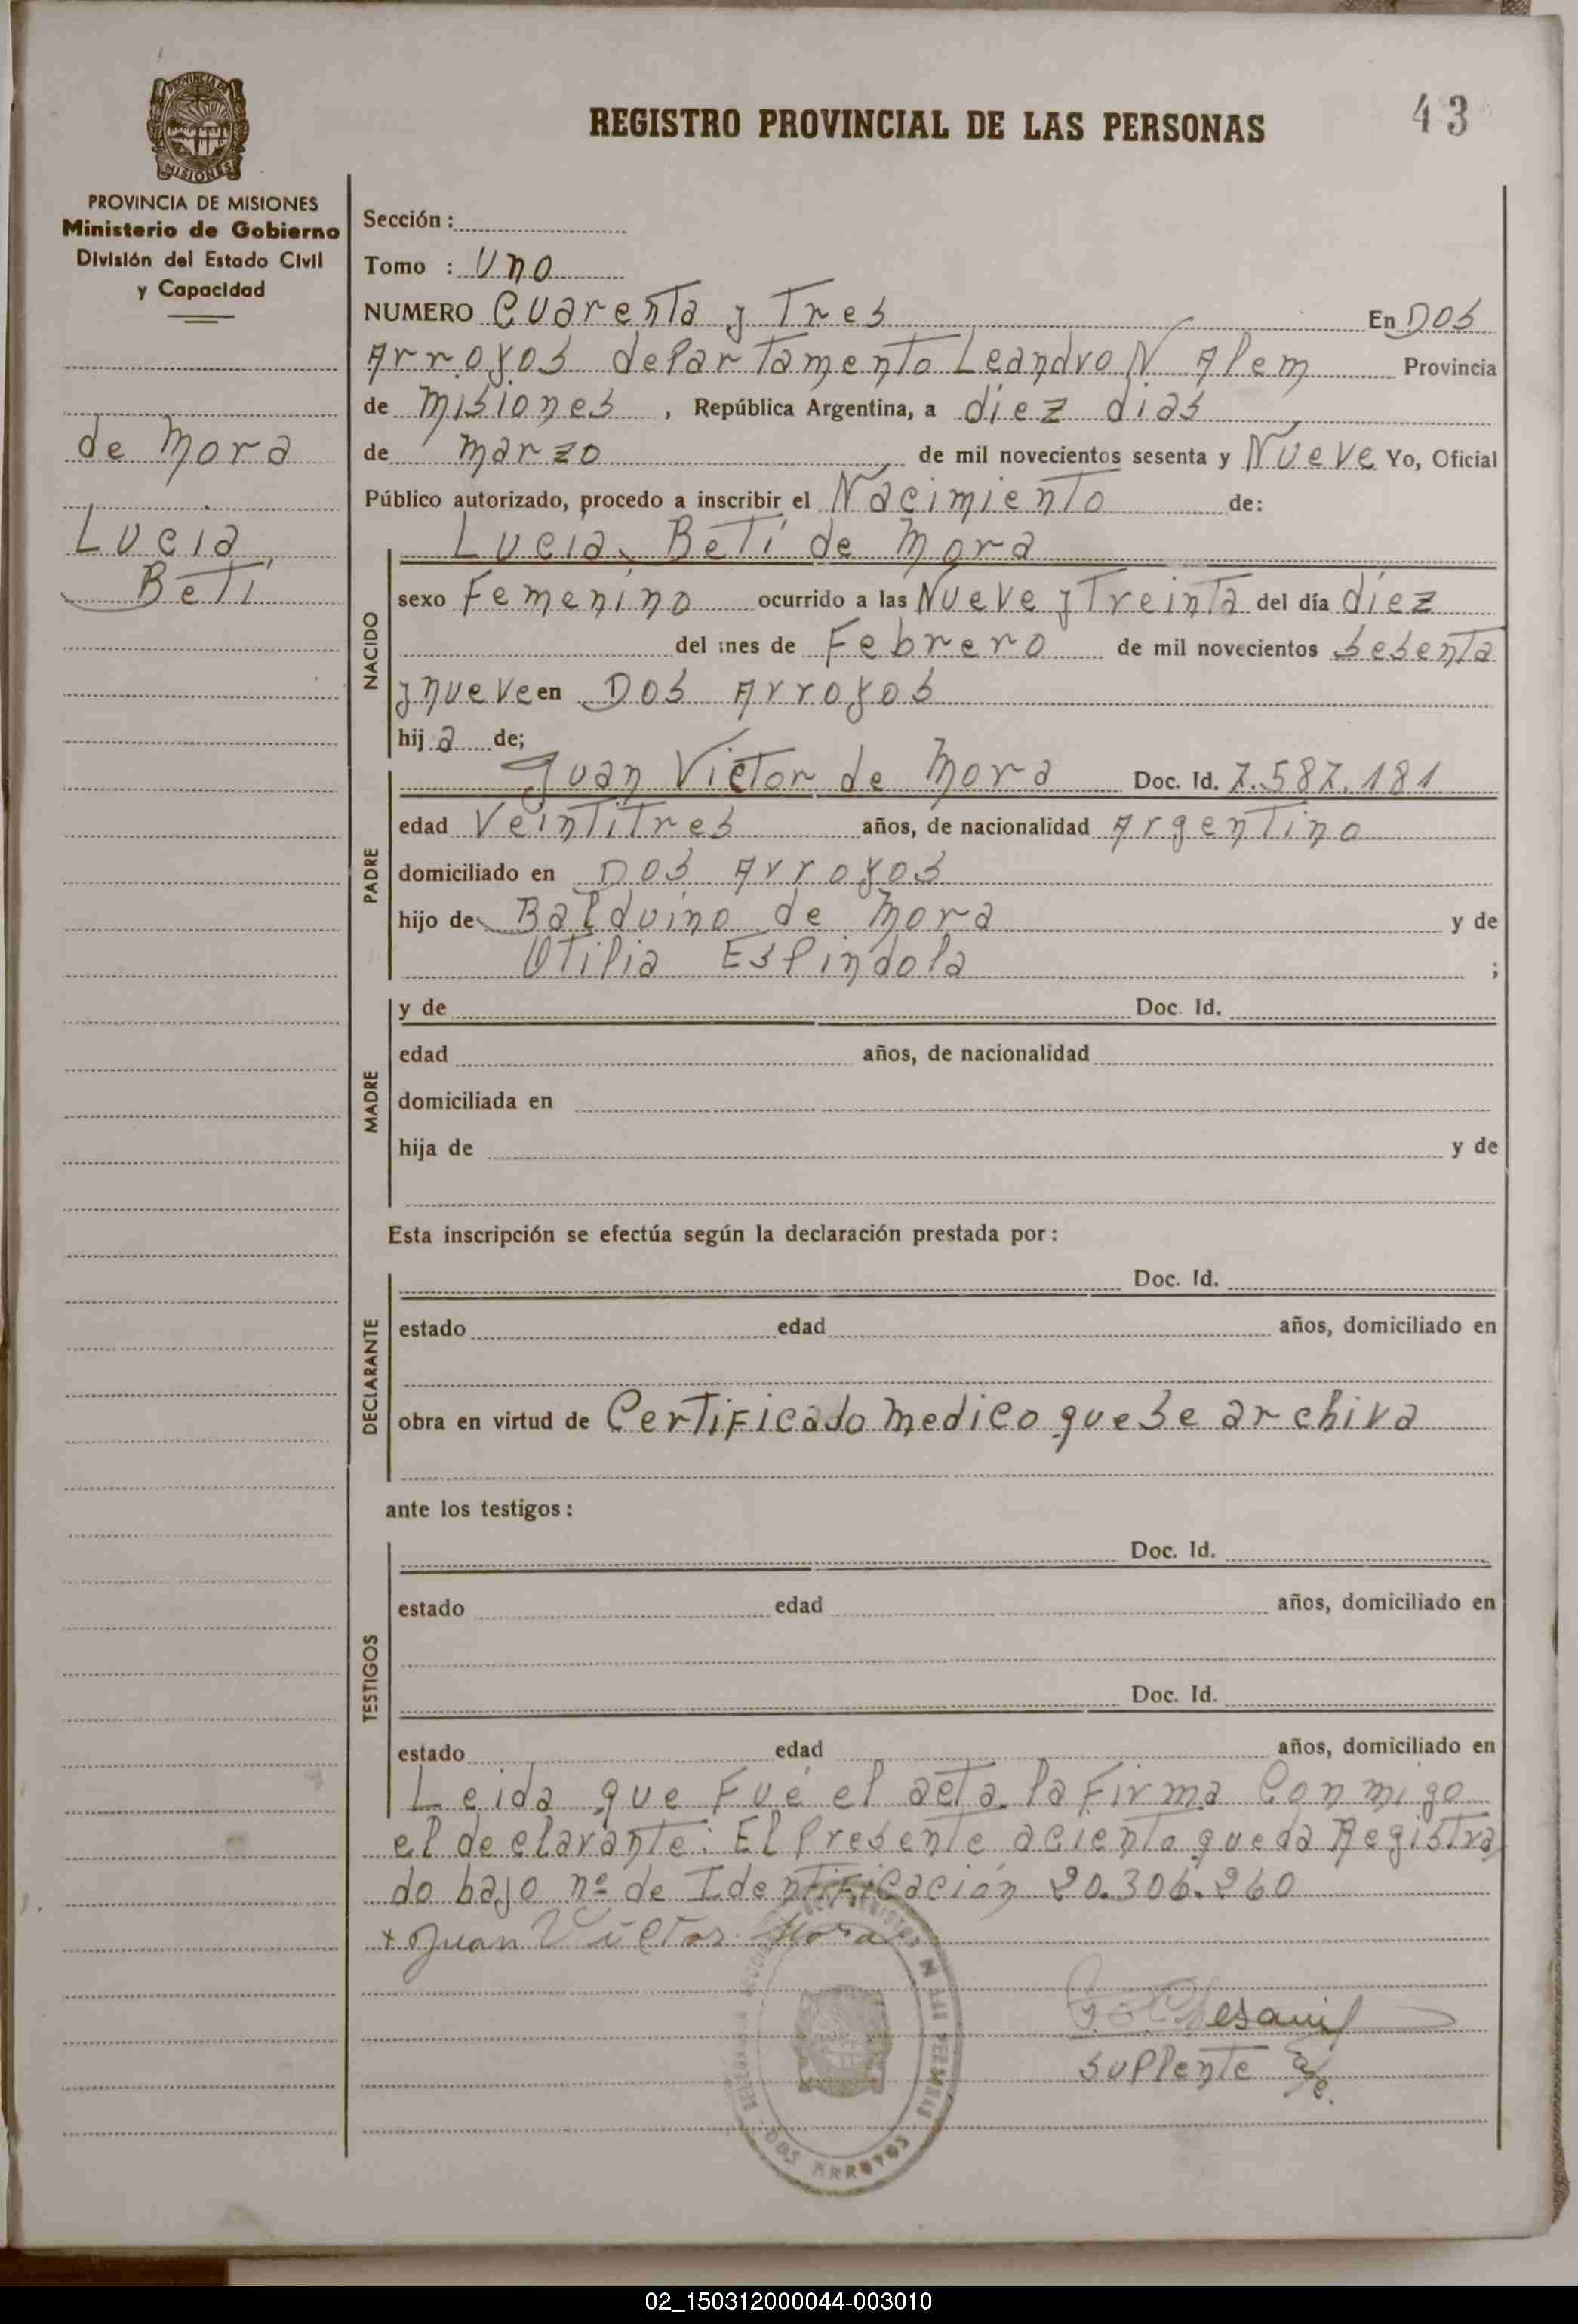 PROVINCIA DE
MISIONES
PROVINCIA DE MISIONES
Ministerio de Gobierno
División del Estado Civil
y Capacidad
de Mora
Lucia
Beti
REGISTRO PROVINCIAL DE LAS PERSONAS
43
Sección :
Tomo : Uno
NUMERO Cuarenta y Tres En Dos
Arroyos departamento Leandro N Alem Provincia
de Misiones , República Argentina, a diez dias
de Marzo de mil novecientos sesenta y Nueve Yo, Oficial
Público autorizado, procedo a inscribir el Nacimiento de:
Lucia Beti de Mora
NACIDO
sexo Femenino ocurrido a las Nueve y Treinta del día diez
del mes de Febrero de mil novecientos sesenta
y nueve en Dos Arroyos
hij a de;
PADRE
Juan Victor de Mora Doc. Id. 7.587.181
edad Veintitres años, de nacionalidad Argentino
domiciliado en Dos Arroyos
hijo de Balduino de Mora y de
Otilia Espindola ;
MADRE
y de Doc. Id.
edad años, de nacionalidad
domiciliada en
hija de y de
Esta inscripción se efectúa según la declaración prestada por :
DECLARANTE
Doc. Id.
estado edad años, domiciliado en
obra en virtud de Certificado medico que se archiva
ante los testigos :
TESTIGOS
Doc. Id.
estado edad años, domiciliado en
Doc. Id.
estado edad años, domiciliado en
Leida que Fué el acta la Firma Conmigo
el declarante: El Presente aciento queda Registra
do bajo nº de Identificación 20.306.260
+ Juan Victor Mora
Suplente
DOS ARROYOS
02_150312000044-003010